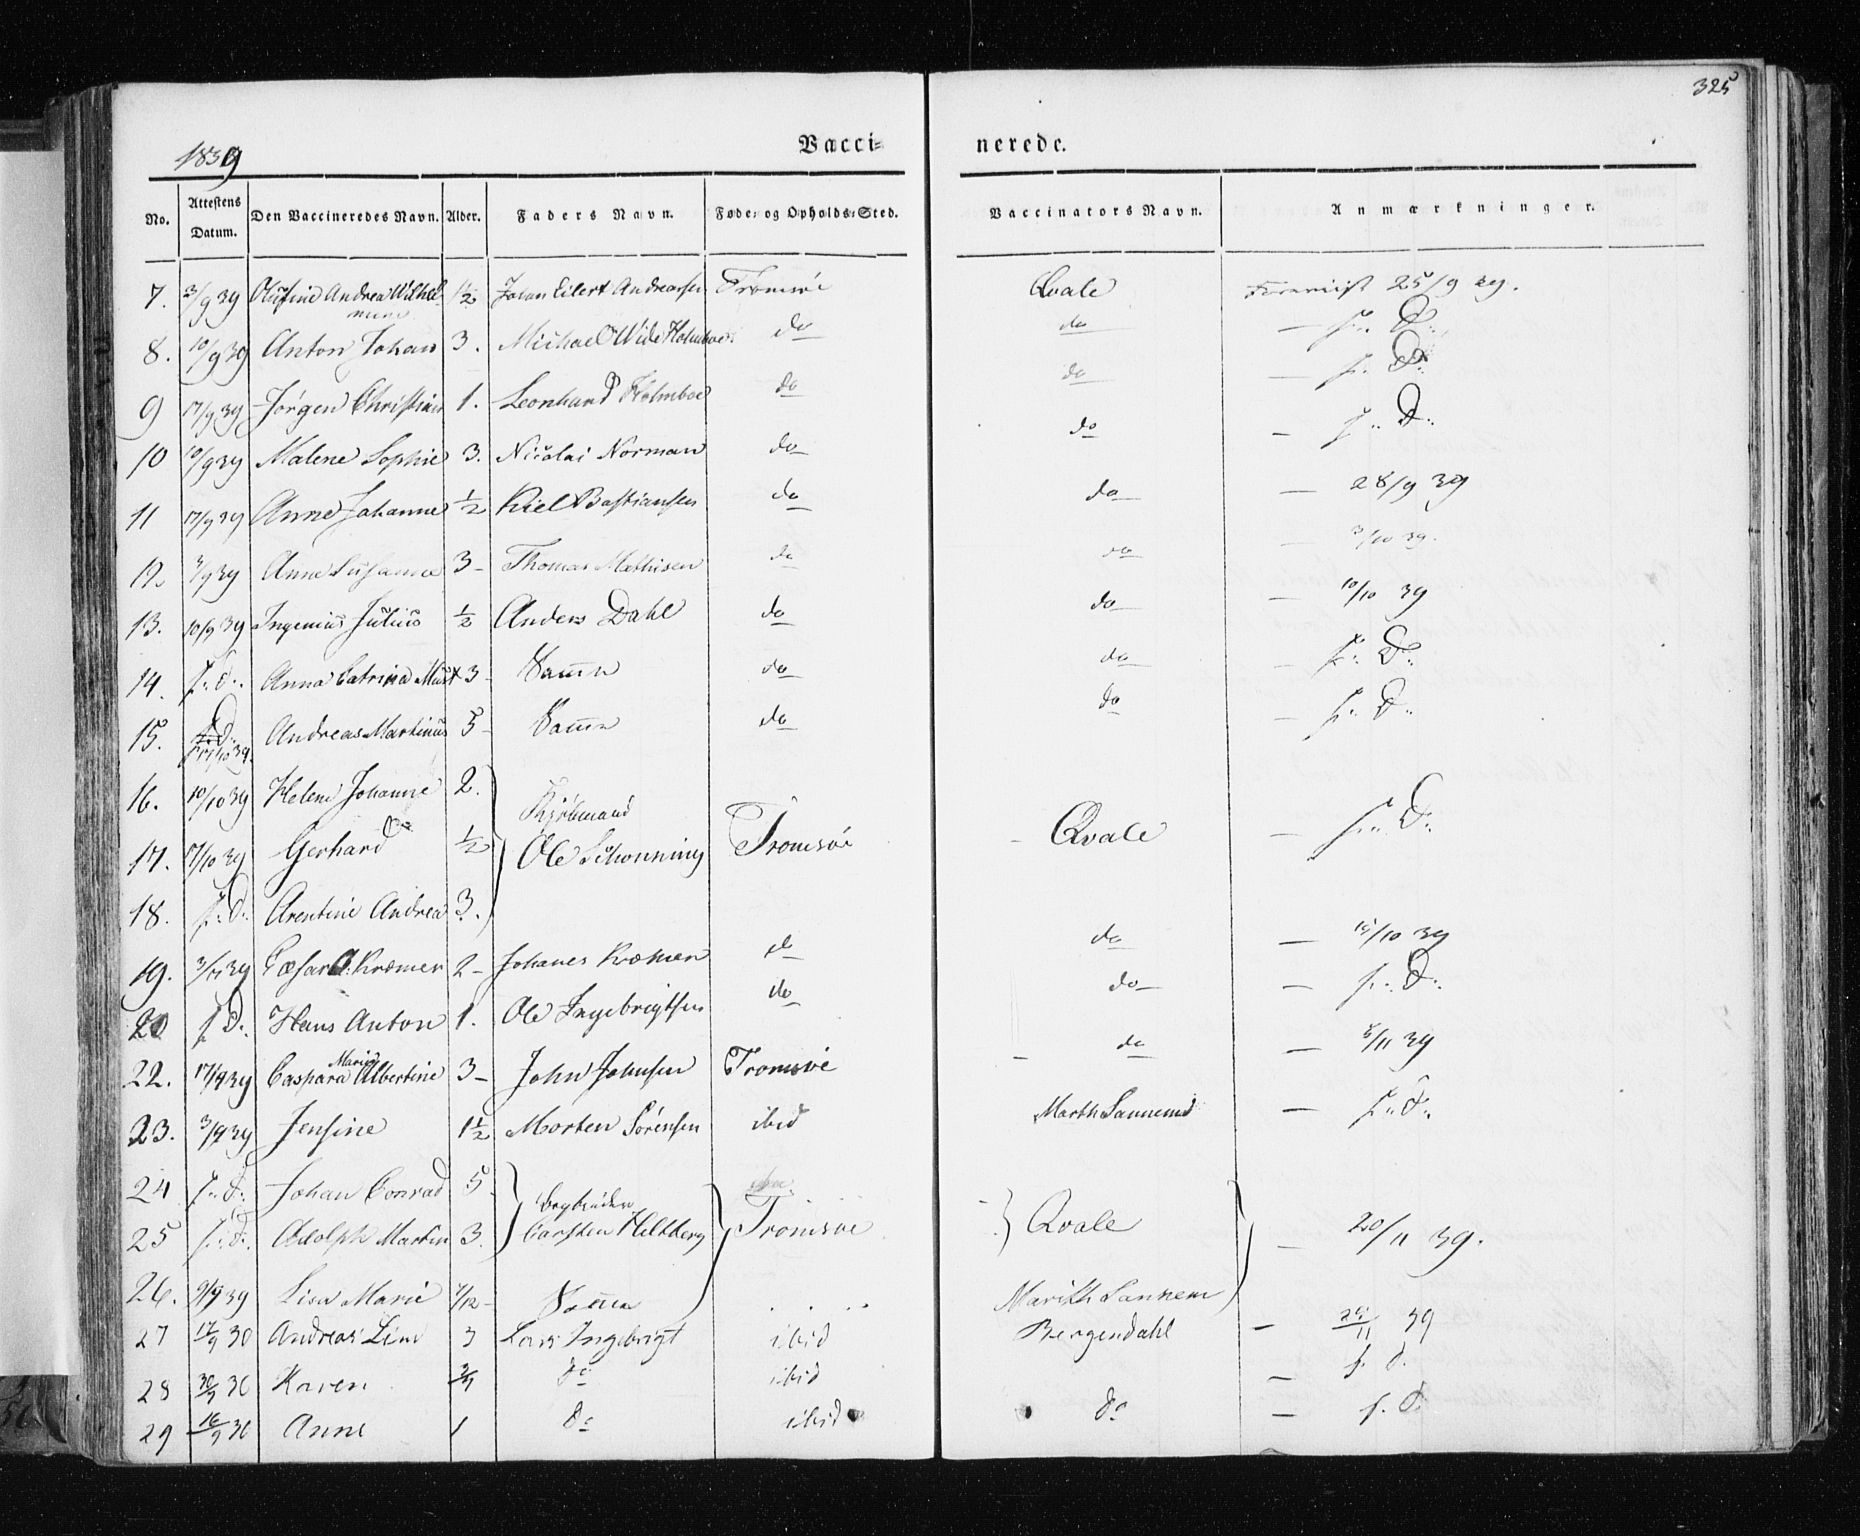 325
1839
Vacci-
nerede.
No. Attestens Datum. Den Vaccineredes Navn. Alder. Faders Navn. Føde- og Opholds-Sted. Vaccinators Navn. Anmærkninger.
7. 3/9 39 Olufine Andrea Wilhelmine 1½ Johan Eilert Andreassen Tromsøe Qvale 25/9 39.
8. 10/9 39 Anton Johan 3. Michael Wide Holmboe do do — f.. D..
9 17/9 39 Jørgen Christian 1. Leonhard Holmboe do do — f.. D..
10 10/9 39 Malene Sophie 3. Nicolai Norman do do — f.. D..
11 17/9 39 Anne Johanne ½ Kiel Bastiansen do do — 28/9 39
12 3/9 39 Anne Susanne 3 — Thomas Mathisen do do — 3/10 39.
13. 10/9 39 Ingenius Julius ½ Anders Dahl do do — 10/10 39
14. f.. d.. Anna Catrina 3 — Samme do do — f.. D..
15. Andreas Martinus 5 — Samme do do — f.. D..
16. 10/10 39 Helene Johanne 2.
Kjøbmand
17. 17/10 39 Gerhard ½ Ole Schønning Tromsøe — Qvale — f.. D..
18. f.. D.. Arentine Andrea 3.
19. Cæsar Kræmer 2 — Johanes Kræmer do do — 15/10 39
20 f D.. Hans Anton 1. Ole Ingebrigtsen do do — f.. D..
22. 17/9 39 Caspara Marie Albertine 3 — John Johnsen Tromsøe — do — 8/11 39
23. 3/9 39 Jensine 1½ Morten Sørensen ibid Marth Sannem — f.. d..
24 f.. d.. Johan Conrad 5
25 f.. d.. Adolph Martin 3. Carsten Heltberg Tromsøe Qvale — 20/11 39.
26. 9/9 39 Lisa Marie 7/12 — Samme . . . . Marith Sannem
27 17/9 30 Andreas 3 Lars Ingebrigt ibid Bergendahl — 39
28 30/9 30 Karen do ibid — f. d.
29 16/9 30 Anne 1 do ibid do — f. d.